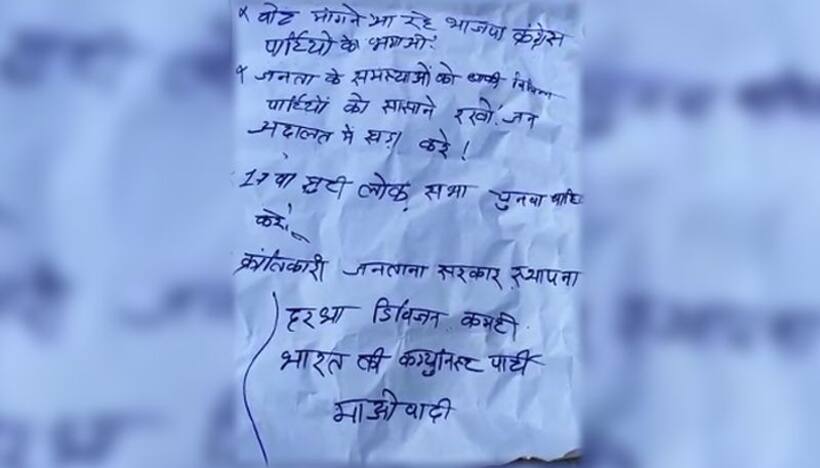 × वोट मांगने आ रहे भाजपा कंग्रेस
पार्टियो के भगाओ!
× जनता के समस्याओं को
पार्टियों को सामने रखो! जन
अदालत में खड़ा करे!
17 वा लोक सभा चुनवा
करो!
क्रांतिकारी जनताना सरकार स्थापना
दरभा डिविजन कमटी
भारत की कम्युनिस्ट पार्टी
माओवादी